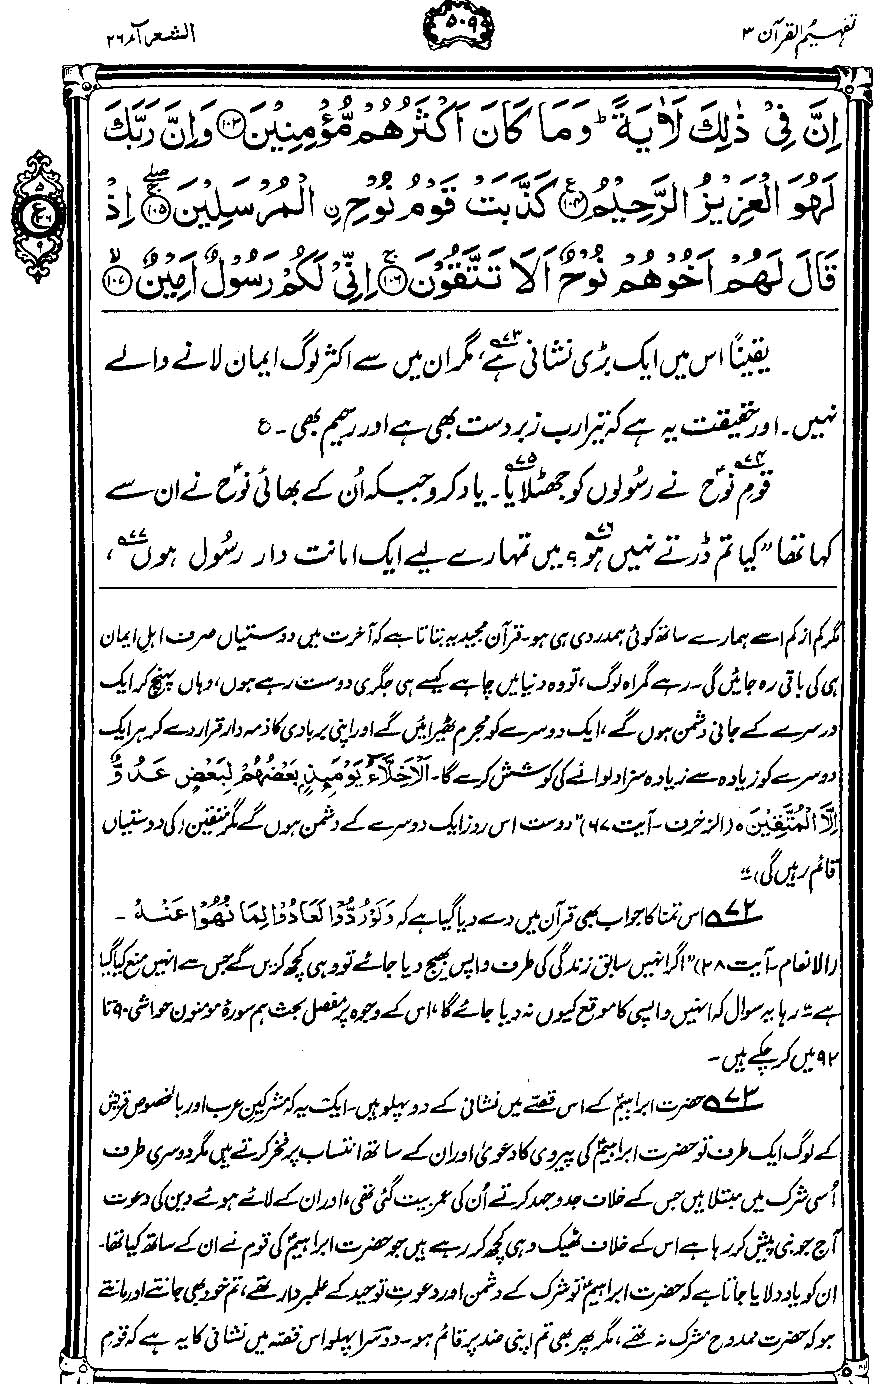 تفہیم القرآن ۳
۵۰۹
الشعرآء ۲۶
اِنَّ فِیْ ذٰلِكَ لَاٰیَةً ؕ وَمَا كَانَ اَكْثَرُهُمْ مُّؤْمِنِیْنَ ﴿۱۰۳﴾ وَاِنَّ رَبَّكَ
لَهُوَ الْعَزِیْزُ الرَّحِیْمُ ﴿۱۰۴﴾ ع كَذَّبَتْ قَوْمُ نُوْحِ نِ الْمُرْسَلِیْنَ ﴿۱۰۵﴾ ۚۖ اِذْ
قَالَ لَهُمْ اَخُوْهُمْ نُوْحٌ اَلَا تَتَّقُوْنَ ﴿۱۰۶﴾ ۚ اِنِّیْ لَكُمْ رَسُوْلٌ اَمِیْنٌ ﴿۱۰۷﴾ ۙ
ع
یقیناً اس میں ایک بڑی نشانی ہے۷۳، مگر ان میں سے اکثر لوگ ایمان لانے والے
نہیں۔ اور حقیقت یہ ہے کہ تیرا رب زبردست بھی ہے اور رحیم بھی۔ ع
قومِ نوحؑ ۷۴ نے رسولوں کو جھٹلایا۷۵۔ یاد کرو جبکہ اُن کے بھائی نوحؑ نے ان سے
کہا تھا ”کیا تم ڈرتے نہیں ہو۷۶؟ میں تمہارے لیے ایک امانت دار رسول ہوں۷۷،
مگر کم از کم اسے ہمارے ساتھ کوئی ہمدردی ہی ہو۔ قرآن مجید یہ بتاتا ہے کہ آخرت میں دوستیاں صرف اہلِ ایمان
ہی کی باقی رہ جائیں گی۔ رہے گمراہ لوگ، تو وہ دنیا میں چاہے کیسے ہی جگری دوست رہے ہوں، وہاں پہنچ کر ایک
دوسرے کے جانی دشمن ہوں گے، ایک دوسرے کو مجرم ٹھیرائیں گے اور اپنی بربادی کا ذمہ دار قرار دے کر ہر ایک
دوسرے کو زیادہ سے زیادہ سزا دلوانے کی کوشش کرے گا۔ اَلْاَخِلَّآءُ یَوْمَئِذٍۭ بَعْضُهُمْ لِبَعْضٍ عَدُوٌّ
اِلَّا الْمُتَّقِیْنَ ہ (الزخرف۔ آیت ۶۷) ”دوست اس روز ایک دوسرے کے دشمن ہوں گے مگر متقین (کی دوستیاں
قائم رہیں گی)“
۷۲ اس تمنا کا جواب بھی قرآن میں دے دیا گیا ہے کہ وَلَوْ رُدُّوْا لَعَادُوْا لِمَا نُهُوْا عَنْهُ۔
(الانعام۔ آیت ۲۸) ”اگر انہیں سابق زندگی کی طرف واپس بھیج دیا جائے تو وہی کچھ کریں گے جس سے انہیں منع کیا گیا
ہے“ رہا یہ سوال کہ انہیں واپسی کا موقع کیوں نہ دیا جائے گا، اس کے وجوہ پر مفصل بحث ہم سورۂ مومنون حواشی ۹۰ تا
۹۲ میں کر چکے ہیں۔
۷۳ حضرت ابراہیمؑ کے اس قصّے میں نشانی کے دو پہلو ہیں۔ ایک یہ کہ مشرکینِ عرب اور بالخصوص قریش
کے لوگ ایک طرف تو حضرت ابراہیمؑ کی پیروی کا دعویٰ اور ان کے ساتھ انتساب پر فخر کرتے ہیں مگر دوسری طرف
اُسی شرک میں مبتلا ہیں جس کے خلاف جدوجہد کرتے اُن کی عمر بیت گئی تھی، اور ان کے لائے ہوئے دین کی دعوت
آج جو نبی پیش کر رہا ہے اس کے خلاف ٹھیک وہی کچھ کر رہے ہیں جو حضرت ابراہیمؑ کی قوم نے ان کے ساتھ کیا تھا۔
ان کو یاد دلایا جاتا ہے کہ حضرت ابراہیمؑ تو شرک کے دشمن اور دعوتِ توحید کے علمبردار تھے، تم خود بھی جانتے اور مانتے
ہو کہ حضرت ممدوح مشرک نہ تھے، مگر پھر بھی تم اپنی ضد پر قائم ہو۔ دوسرا پہلو اس قصّہ میں نشانی کا یہ ہے کہ قومِ